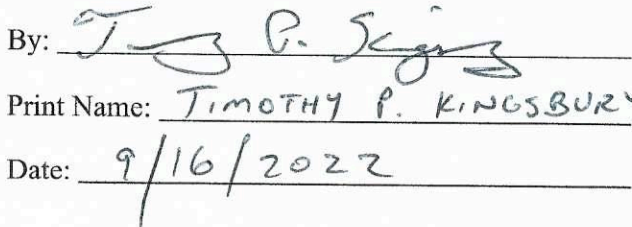 By:
Print Name: TIMOTHY P. KINGSBURY
Date: 9/16/2022